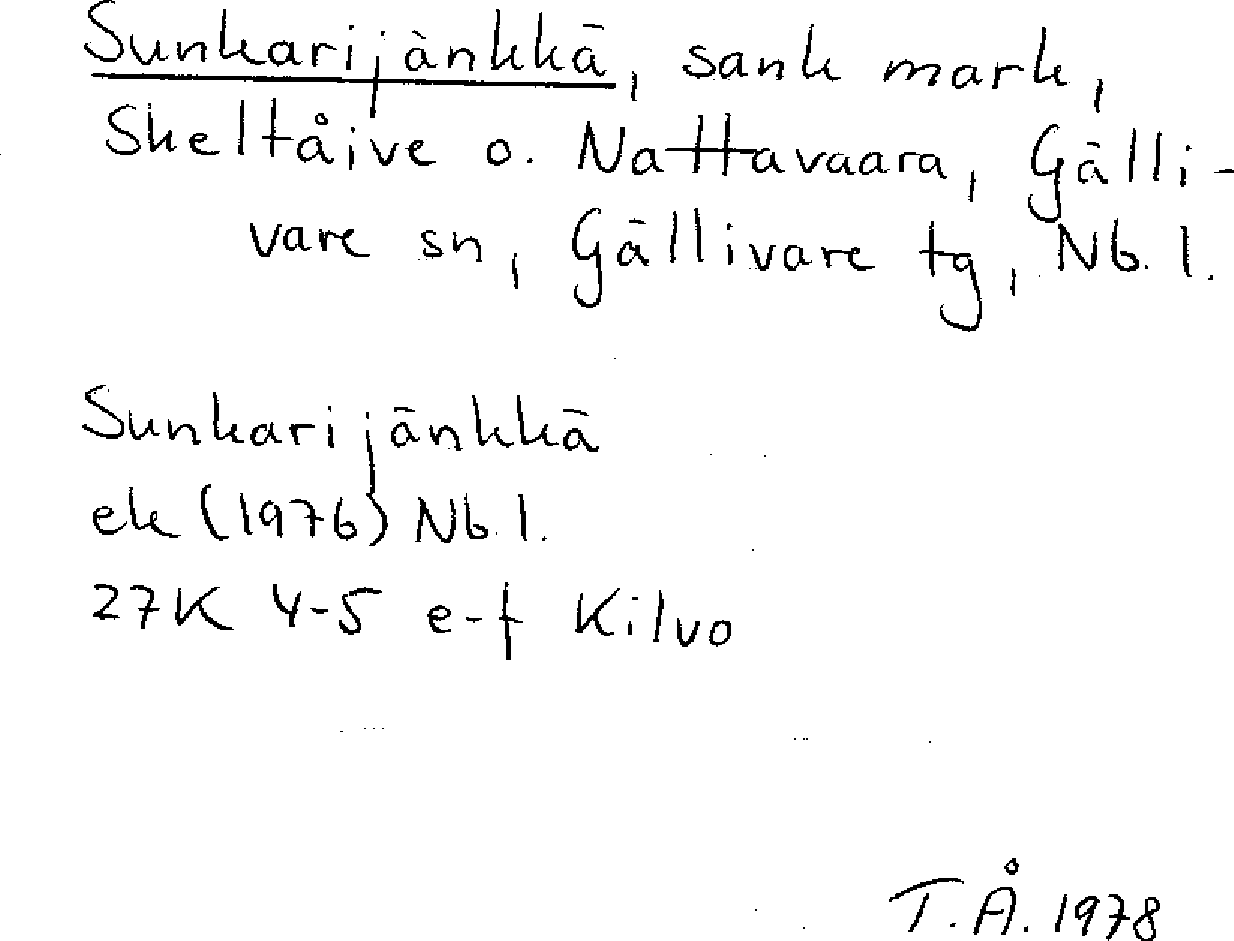 Sunkarijänkkä, sank mark,
Skeltåive o. Nattavaara, Gälli-
vare sn, Gällivare tg, Nb. l.
Sunkarijänkkä
ek (1976) Nb. l.
27K 4-5 e-f Kilvo
T.Å. 1978